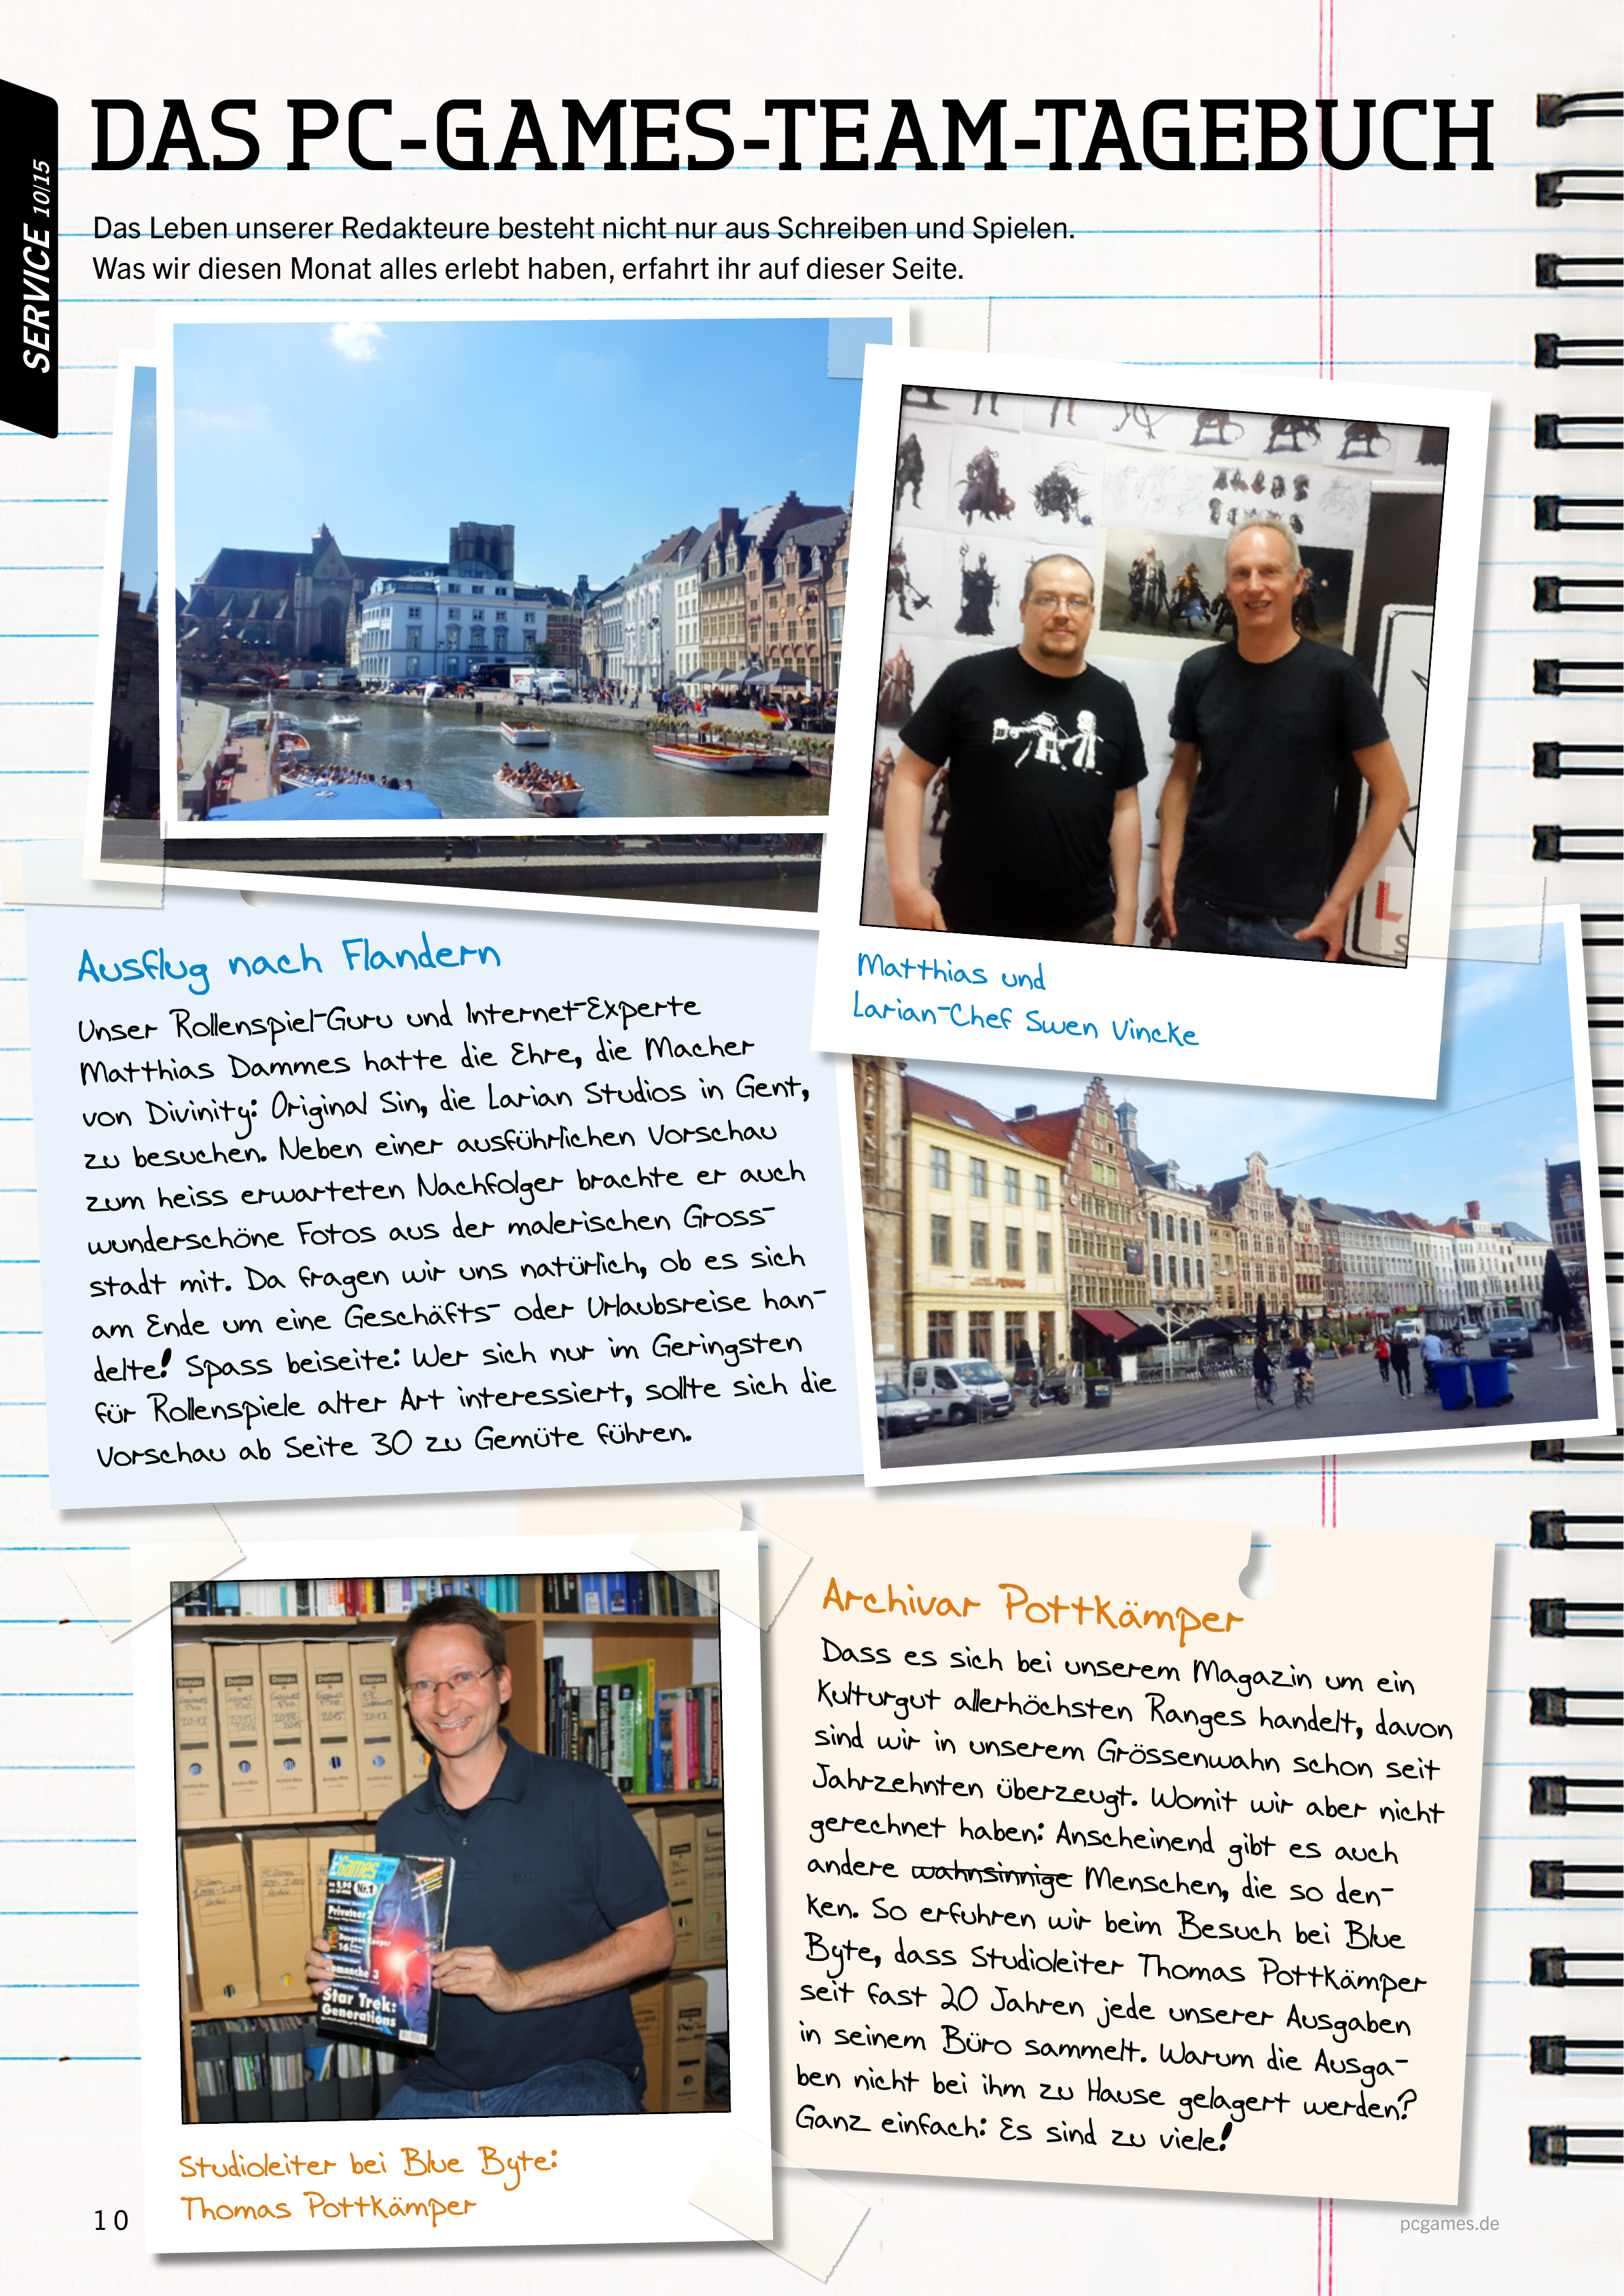 SERVICE 10/15
DAS PC-GAMES-TEAM-TAGEBUCH
Das Leben unserer Redakteure besteht nicht nur aus Schreiben und Spielen.
Was wir diesen Monat alles erlebt haben, erfahrt ihr auf dieser Seite.
Matthias und
Larian-Chef Swen Vincke
Ausflug nach Flandern
Unser Rollenspiel-Guru und Internet-Experte
Matthias Dammes hatte die Ehre, die Macher
von Divinity: Original Sin, die Larian Studios in Gent,
zu besuchen. Neben einer ausführlichen Vorschau
zum heiss erwarteten Nachfolger brachte er auch
wunderschöne Fotos aus der malerischen Gross-
stadt mit. Da fragen wir uns natürlich, ob es sich
am Ende um eine Geschäfts- oder Urlaubsreise han-
delte! Spass beiseite: Wer sich nur im Geringsten
für Rollenspiele alter Art interessiert, sollte sich die
Vorschau ab Seite 30 zu Gemüte führen.
Archivar Pottkämper
Dass es sich bei unserem Magazin um ein
Kulturgut allerhöchsten Ranges handelt, davon
sind wir in unserem Grössenwahn schon seit
Jahrzehnten überzeugt. Womit wir aber nicht
gerechnet haben: Anscheinend gibt es auch
andere wahnsinnige Menschen, die so den-
ken. So erfuhren wir beim Besuch bei Blue
Byte, dass Studioleiter Thomas Pottkämper
seit fast 20 Jahren jede unserer Ausgaben
in seinem Büro sammelt. Warum die Ausga-
ben nicht bei ihm zu Hause gelagert werden?
Ganz einfach: Es sind zu viele!
Games
Nr.1
Privateer 2
Star Trek:
Generations
Studioleiter bei Blue Byte:
Thomas Pottkämper
10
pcgames.de